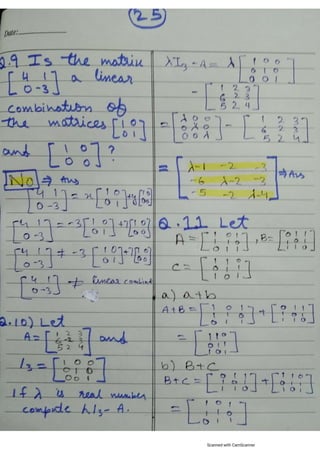 25
Date:
Q.9 Is the matrix
[4 1
0 -3] a linear
combination of
the matrices [1 0
0 1]
and [1 0
0 0] ?
No ⇒ Ans
[4 1
0 -3] = x [1 0
0 1] + y [1 0
0 0]
[4 1
0 -3] = -3 [1 0
0 1] + 7 [1 0
0 0]
[4 1
0 -3] ≠ -3 [1 0
0 1] + 7 [1 0
0 0]
[4 1
0 -3] ≠ linear combinat
Q.10) Let
A = [1 2 3
6 2 3
5 2 4] and
I3 = [1 0 0
0 1 0
0 0 1]
If λ is real number
compute λI3 - A.
λI3 - A = λ [1 0 0
0 1 0
0 0 1]
- [1 2 3
6 2 3
5 2 4]
= [λ 0 0
0 λ 0
0 0 λ] - [1 2 3
6 2 3
5 2 4]
= [λ-1 -2 -3
-6 λ-2 -3
-5 -2 λ-4] ⇒ Ans
Q.11 Let
A = [1 0 1
1 1 0
], B = [0 1 1
1 0 1
1 1 0]
C = [1 1 0
]
a) a+b
A+B = [1 0 1
] + [0 1 1
1 0 1
1 1 0]
= [1 1 0
]
b) B+C
B+C = [0 1 1
1 0 1
1 1 0] + [1 1 0
]
= [1 0 1
]
Scanned with CamScanner